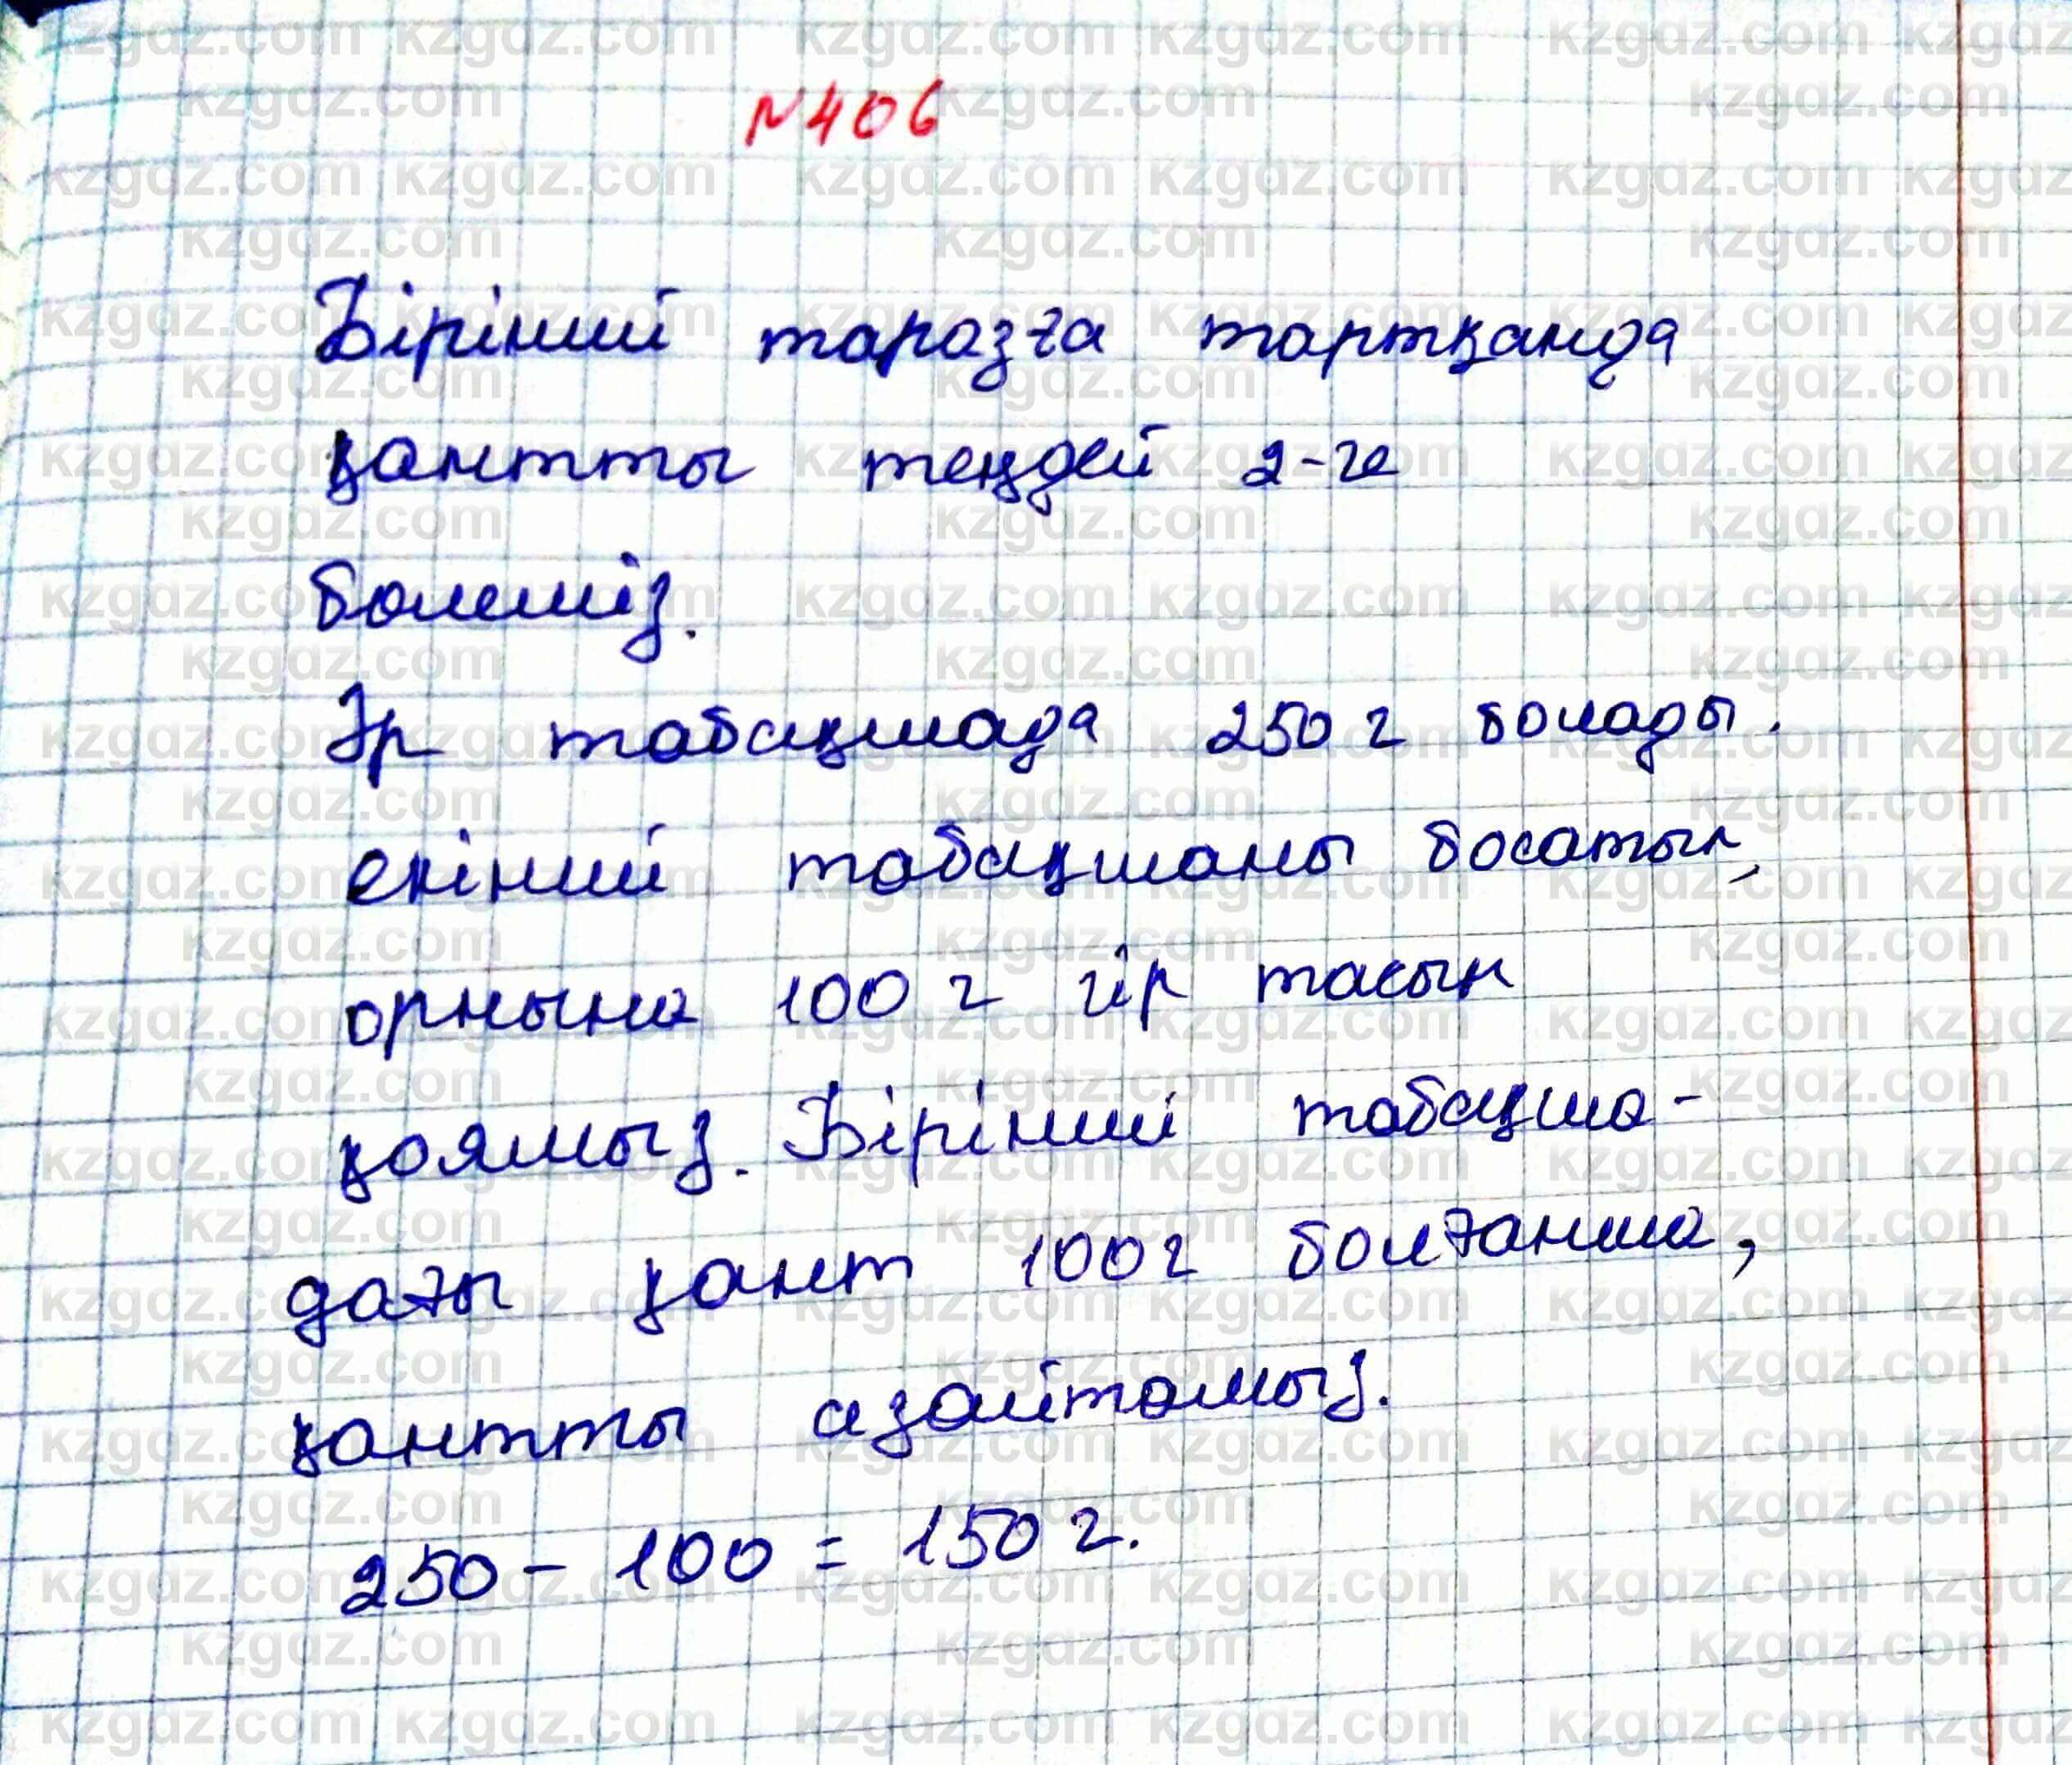 №406
Бірінші таразға тартқанда
қантты теңдей 2-ге
бөлеміз.
Әр табақшада 250 г болады.
екінші табақшаны босатып,
орнына 100 г гір тасын
қоямыз. Бірінші табақша-
дағы қант 100г болғанша,
қантты азайтамыз.
250 - 100 = 150 г.